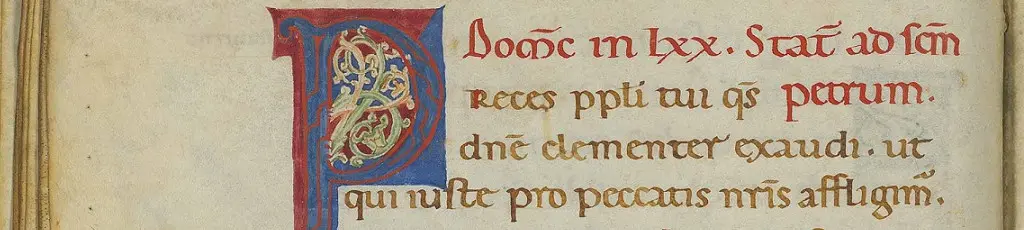 Domc̄ in lxx. Stat̄ ad sc̄m
PReces ppl̄i tui q̄s petrum.
dn̄e clementer exaudi. ut
qui iuste pro peccatis nr̄is affligim᷒.